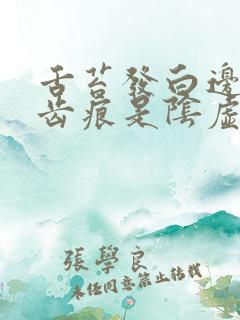 舌苔發白邊
齿痕是陰虛
張學良
未經同意禁止轉載